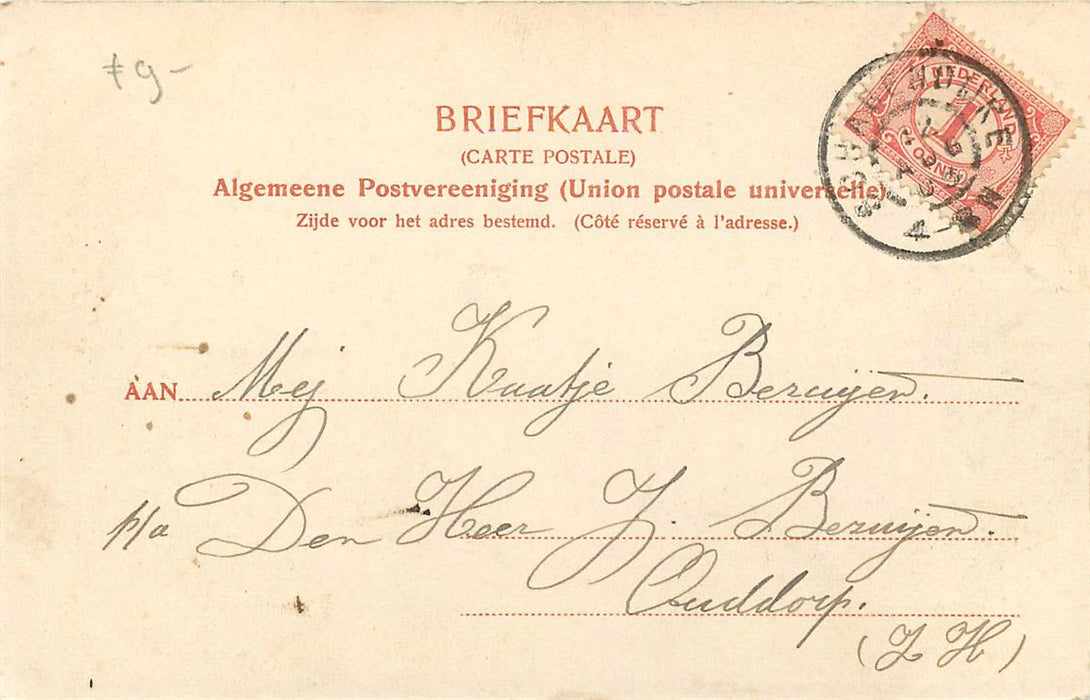 ƒ 9-
BRIEFKAART
(CARTE POSTALE)
Algemeene Postvereeniging (Union postale universelle)
Zijde voor het adres bestemd. (Côté réservé à l'adresse.)
NEDERLAND
1
CENT
AAN Mej Kaatje Beruijen.
p/a Den Heer J. Beruijen.
Ouddorp.
(Z H)